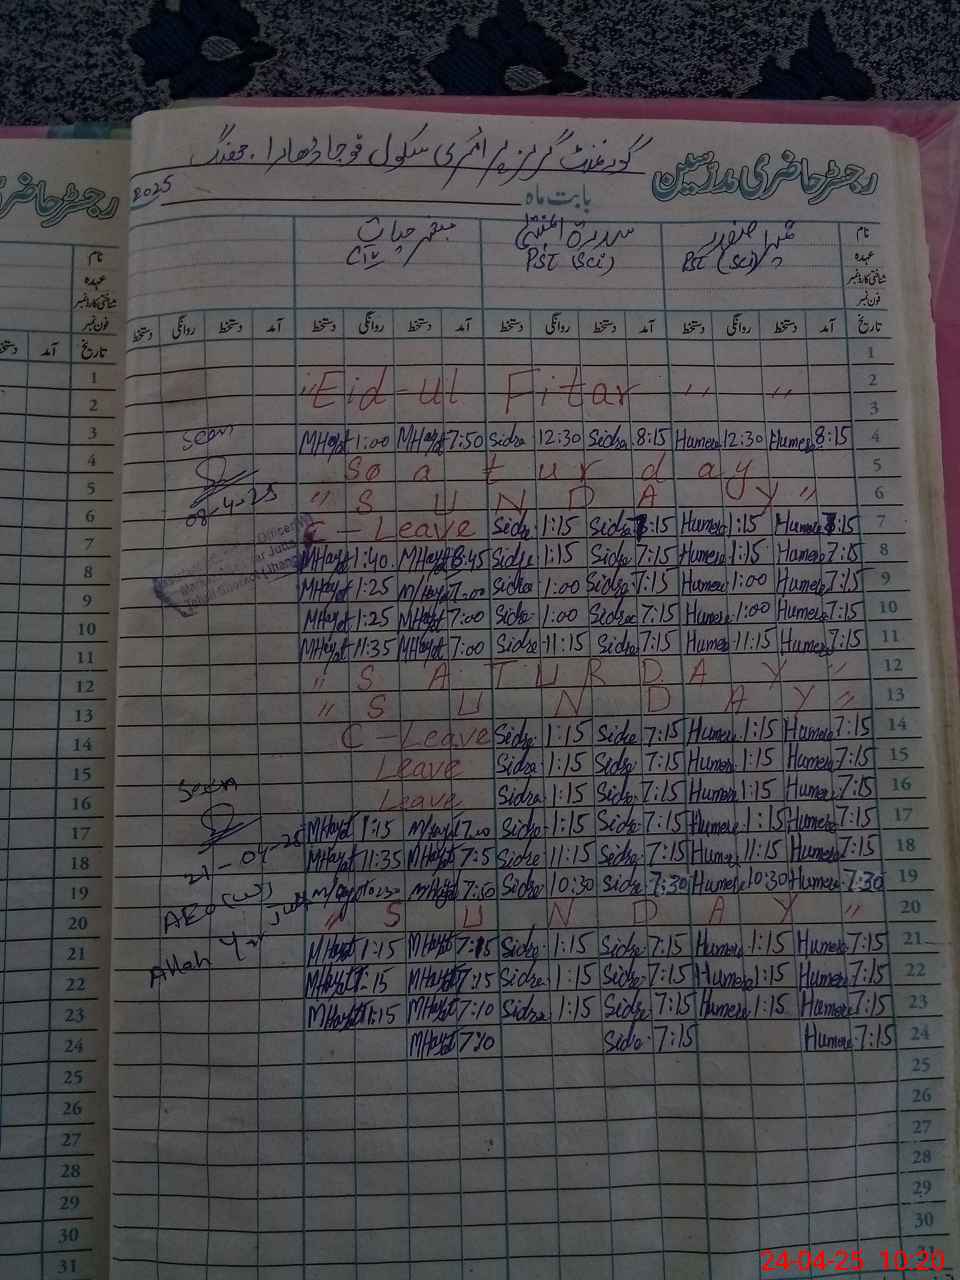 رجسٹر حاضری مدرسین
گورنمنٹ گرلز پرائمری سکول
بابت ماہ 2025
نام
عہدہ PST (Sci) PST (Sci)
شناختی کارڈ نمبر
فون نمبر
تاریخ آمد دستخط روانگی دستخط آمد دستخط روانگی دستخط آمد دستخط روانگی دستخط آمد دستخط روانگی دستخط
1
"Eid-ul Fitar " " 2
3
Seen MHayat 1:00 MHayat 7:50 Sidra 12:30 Sidra 8:15 Humera 12:30 Humera 8:15 4
Saaturday 5
08-4-25 " S U N D A Y " 6
C-Leave Sidra 1:15 Sidra :15 Humera 1:15 Humera :15 7
MHayat 1:40 MHayat 8:45 Sidra 1:15 Sidra 7:15 Humera 1:15 Humera 7:15 8
MHayat 1:25 MHayat 7:00 Sidra 1:00 Sidra 7:15 Humera 1:00 Humera 7:15 9
MHayat 1:25 MHayat 7:00 Sidra 1:00 Sidra 7:15 Humera 1:00 Humera 7:15 10
MHayat 11:35 MHayat 7:00 Sidra 11:15 Sidra 7:15 Humera 11:15 Humera 7:15 11
" S A T U R D A Y " 12
" S U N D A Y " 13
C-Leave Sidra 1:15 Sidra 7:15 Humera 1:15 Humera 7:15 14
Leave Sidra 1:15 Sidra 7:15 Humera 1:15 Humera 7:15 15
Seen Leave Sidra 1:15 Sidra 7:15 Humera 1:15 Humera 7:15 16
MHayat 1:15 MHayat 7:00 Sidra 1:15 Sidra 7:15 Humera 1:15 Humera 7:15 17
21-04-25 MHayat 11:35 MHayat 7:5 Sidra 11:15 Sidra 7:15 Humera 11:15 Humera 7:15 18
AEO MHayat 10:30 MHayat 7:50 Sidra 10:30 Sidra 7:30 Humera 10:30 Humera 7:30 19
" S U N D A Y " 20
Allah Yar MHayat 1:15 MHayat 7:15 Sidra 1:15 Sidra 7:15 Humera 1:15 Humera 7:15 21
MHayat 1:15 MHayat 7:15 Sidra 1:15 Sidra 7:15 Humera 1:15 Humera 7:15 22
MHayat 1:15 MHayat 7:10 Sidra 1:15 Sidra 7:15 Humera 1:15 Humera 7:15 23
MHayat 7:10 Sidra 7:15 Humera 7:15 24
25
26
27
28
29
30
31
رجسٹر حاضری
نام
عہدہ
شناختی کارڈ نمبر
فون نمبر
تاریخ آمد دستخط
1
2
3
4
5
6
7
8
9
10
11
12
13
14
15
16
17
18
19
20
21
22
23
24
25
26
27
28
29
30
31
24-04-25 10:20